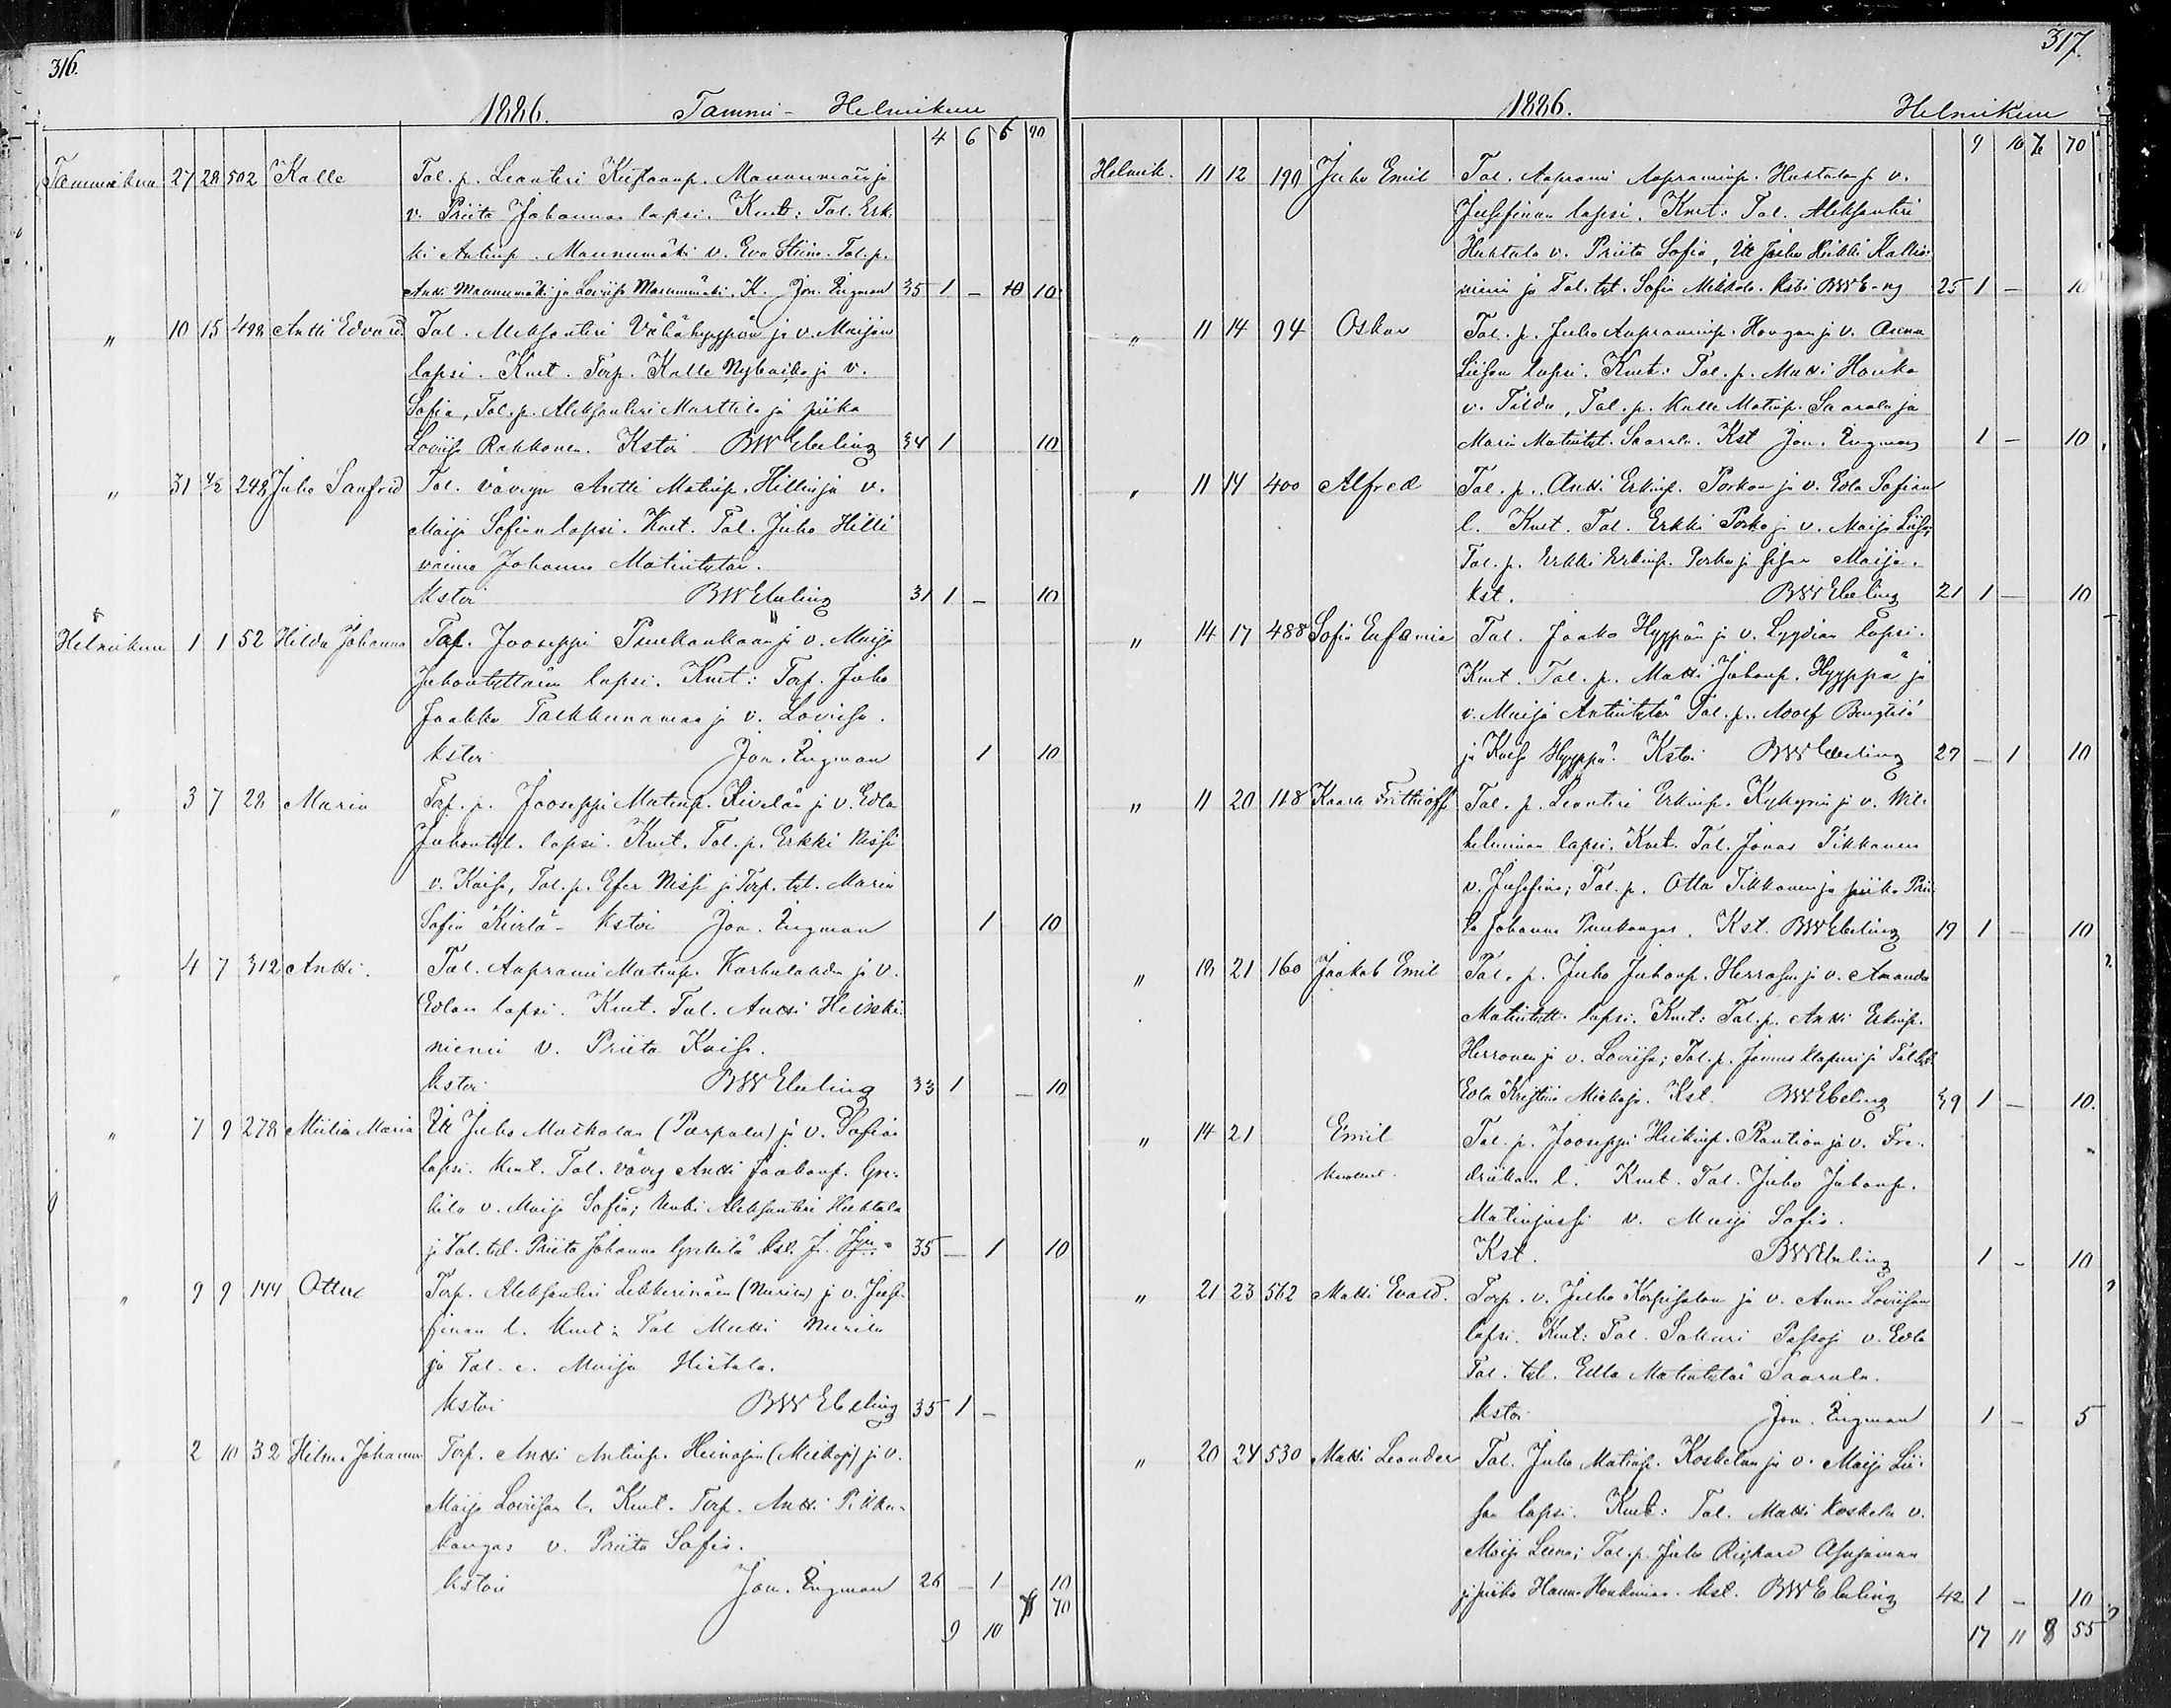 316.
1886. Tammi- Helmikuu
4 6 6 90
Tammikuu 27 28 502 Kalle Tal. p. Leanteri Kustaanp. Maunumäen ja
v. Priita Johannan lapsi. Kmt: Tal. Erk-
ki Antinp. Maunumäki v. Eva Stiina. Tal. p.
Antti Maunumäki ja Loviisa Maunumäki. K. Jon. Engman 35 1 – 10 10
„ 10 15 498 Antti Edvard Tal. Aleksanteri Vähähyypän ja v. Maijan
lapsi. Kmt. Torp. Kalle Nybacka ja v.
Sofia, Tal. p. Aleksanteri Marttila ja piika
Loviisa Rahkonen. Kstoi BWEbeling 34 1 10
„ 31 1/2 248 Juho Sanfrid Tal. vävyn Antti Matinp. Hillin ja v.
Maija Sofian lapsi. Kmt. Tal. Juho Hilli
vaimo Johanna Matintytär.
Kstoi BWEbeling 31 1 – 10
Helmikuu 1 1 52 Hilda Johanna Tal. Jooseppi Puukankaan ja v. Maija
Juhontyttären lapsi. Kmt: Torp. Juho
Jaakko Talkkunamaa ja v. Loviisa.
Kstoi Jon. Engman 1 10
„ 3 7 28 Maria Tal. p. Jooseppi Matinp. Kivelän ja v. Edla
Juhontyt. lapsi. Kmt. Tal. p. Erkki Nissi
v. Kaisa, Tal. p. Efer Nissi ja Torp. tyt. Maria
Sofia Kivelä – Kstoi Jon. Engman 1 10
„ 4 7 312 Antti. Tal. Aaprami Matinp. Karhulahden ja v.
Edlan lapsi. Kmt. Tal. Antti Heinski-
niemi v. Priita Kaisa.
Kstoi BWEbeling 33 1 – 10
„ 7 9 278 Miilia Maria Itt Juho Matkalan (Parpala) ja v. Sofian
lapsi. Kmt. Tal. vävy Antti Jaakonp. Gre-
kilä v. Maija Sofia; Renki Aleksanteri Huhtala
ja Tal. tyt. Priita Johanna Grekilä Kst. J. 35 – 1 10
„ 9 9 144 Otto Torp. Aleksanteri Lekkerinään (Nurila) ja v. Juse-
finan l. Kmt: Tal Matti Nurila
ja Tal. e. Maija Hietala.
Kstoi BWEbeling 35 1 –
„ 2 10 32 Hilma Johanna Torp. Antti Antinp. Heinojan (Mickojs) ja v.
Maija Loviisan l. Kmt. Torp. Antti Pitkä-
kangas v. Priita Sofia.
Kstoi Jon. Engman 26 – 1 10
9 10 7 70
317.
1886. Helmikuu
9 10 7 70
Helmik. 11 12 190 Juho Emil Tal. Aaprami Aapraminp. Huhtalan ja v.
Jusefinan lapsi. Kmt: Tal. Aleksanteri
Huhtala v. Priita Sofia, Itt Juho Heikki Kallio-
niemi ja Tal. tyt. Sofia Mikkola. Kstoi BWE-ng 25 1 – 10
„ 11 14 94 Oskar Tal. p. Juho Aapraminp. Hongan ja v. Anna
Liisan lapsi. Kmt: Tal. p. Matti Honka
v. Tilda, Tal. p. Kalle Matinp. Saarela ja
Maria Matintyt. Saarela. Kst Jon. Engman 1 – 10
„ 11 14 400 Alfred Tal. p. Antti Erkinp. Porkon ja v. Edla Sofian
l. Kmt. Tal. Erkki Porko ja v. Maija Liisa,
Tal. p. Erkki Erkinp. Porko ja sisar Maija.
Kst. BWEbeling 21 1 – 10
„ 14 17 488 Sofia Eufemia Tal. Jaako Hyypän ja v. Lyydian lapsi.
Kmt. Tal. p. Matti Juhonp. Hyyppä ja
v. Maija Antintytär Tal. p. Adolf Bengtilä
ja Kaisa Hyyppä. Kstoi BWEbeling 27 – 1 10
„ 11 20 118 Kaarle Frithioff Tal. p. Leanteri Erkinp. Kykyrin ja v. Wil-
helmiinan lapsi. Kmt. Tal. Jonas Tikkanen
v. Jusefina; Tal. p. Otto Tikkanen ja piika Prii-
ta Johanna Puukangas. Kst. BWEbeling 19 1 – 10
„ 18 21 160 Jaakob Emil Tal. p. Juho Juhonp. Herrosen ja v. Amanda
Matintytt. lapsi. Kmt: Tal. p. Antti Erkinp.
Herronen ja v. Loviisa; Tal. p. Jonas Klapuri ja Tal. tyt.
Edla Kristiina Mickojs. Kst. BWEbeling 39 1 – 10.
„ 14 21 Emil Tal. p. Jooseppi Heikinp. Rantion ja v. Fre-
driikan l. Kmt. Tal. Juho Juhonp.
Matinjussi v. Maija Sofia.
Kst. BWEbeling 1 – 10
„ 21 23 562 Matti Evald. Torp. v. Juho Korpisalon ja v. Anna Loviisan
lapsi. Kmt: Tal. Sakari Passoja v. Edla
Tal. tyt. Edla Matintytär Saarela.
Kstoi Jon. Engman 1 – 5
„ 20 24 530 Matti Leander Tal. Juho Matinp. Koskelan ja v. Maija Lii-
san lapsi. Kmt: Tal. Matti Koskela v.
Maija Leena; Tal. p. Juho Rickard Asujamaa
ja piika Hanna Honkimaa. Kst. BWEbeling 42 1 – 10
17 11 8 55